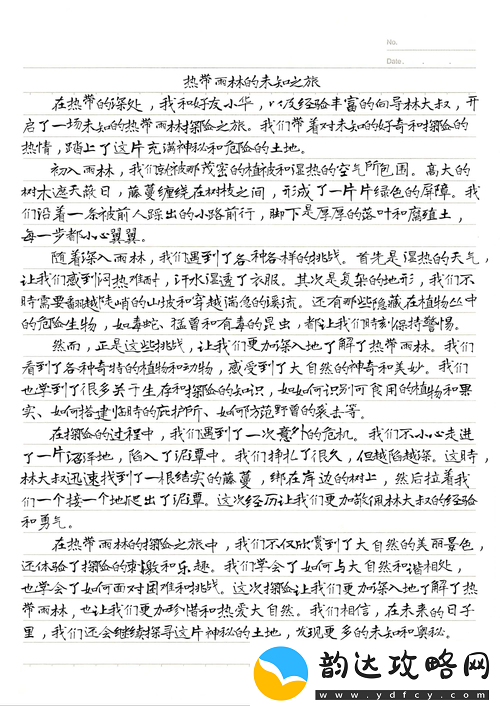 No.
Date. . .
热带雨林的未知之旅
在热带的深处，我和好友小华，以及经验丰富的向导林大叔，开
启了一场未知的热带雨林探险之旅。我们带着对未知的好奇和探险的
热情，踏上了这片充满神秘和危险的土地。
初入雨林，我们就被那茂密的植被和湿热的空气所包围。高大的
树木遮天蔽日，藤蔓缠绕在树枝之间，形成了一片片绿色的屏障。我
们沿着一条被前人踩出的小路前行，脚下是厚厚的落叶和腐殖土，
每一步都小心翼翼。
随着深入雨林，我们遇到了各种各样的挑战。首先是湿热的天气，
让我们感到闷热难耐，汗水湿透了衣服。其次是复杂的地形，我们不
时需要翻越陡峭的山坡和穿越湍急的溪流。还有那些隐藏在植物丛中
的危险生物，如毒蛇、猛兽和有毒的昆虫，都让我们时刻保持警惕。
然而，正是这些挑战，让我们更加深入地了解了热带雨林。我们
看到了各种奇特的植物和动物，感受到了大自然的神奇和美妙。我们
也学到了很多关于生存和探险的知识，如如何识别可食用的植物和果
实、如何搭建临时的庇护所、如何防范野兽的袭击等。
在探险的过程中，我们遇到了一次意外的危机。我们不小心走进
了一片沼泽地，陷入了泥潭中。我们挣扎了很久，但越陷越深。这时，
林大叔迅速找到了一根结实的藤蔓，绑在岸边的树上，然后拉着我
们一个接一个地爬出了泥潭。这次经历让我们更加敬佩林大叔的经验
和勇气。
在热带雨林的探险之旅中，我们不仅欣赏到了大自然的美丽景色，
还体验了探险的刺激和乐趣。我们学会了如何与大自然和谐相处，
也学会了如何面对困难和挑战。这次探险让我们更加深入地了解了热
带雨林，也让我们更加珍惜和热爱大自然。我们相信，在未来的日子
里，我们还会继续探寻这片神秘的土地，发现更多的未知和奥秘。
韵达攻略网
www.ydfcy.com